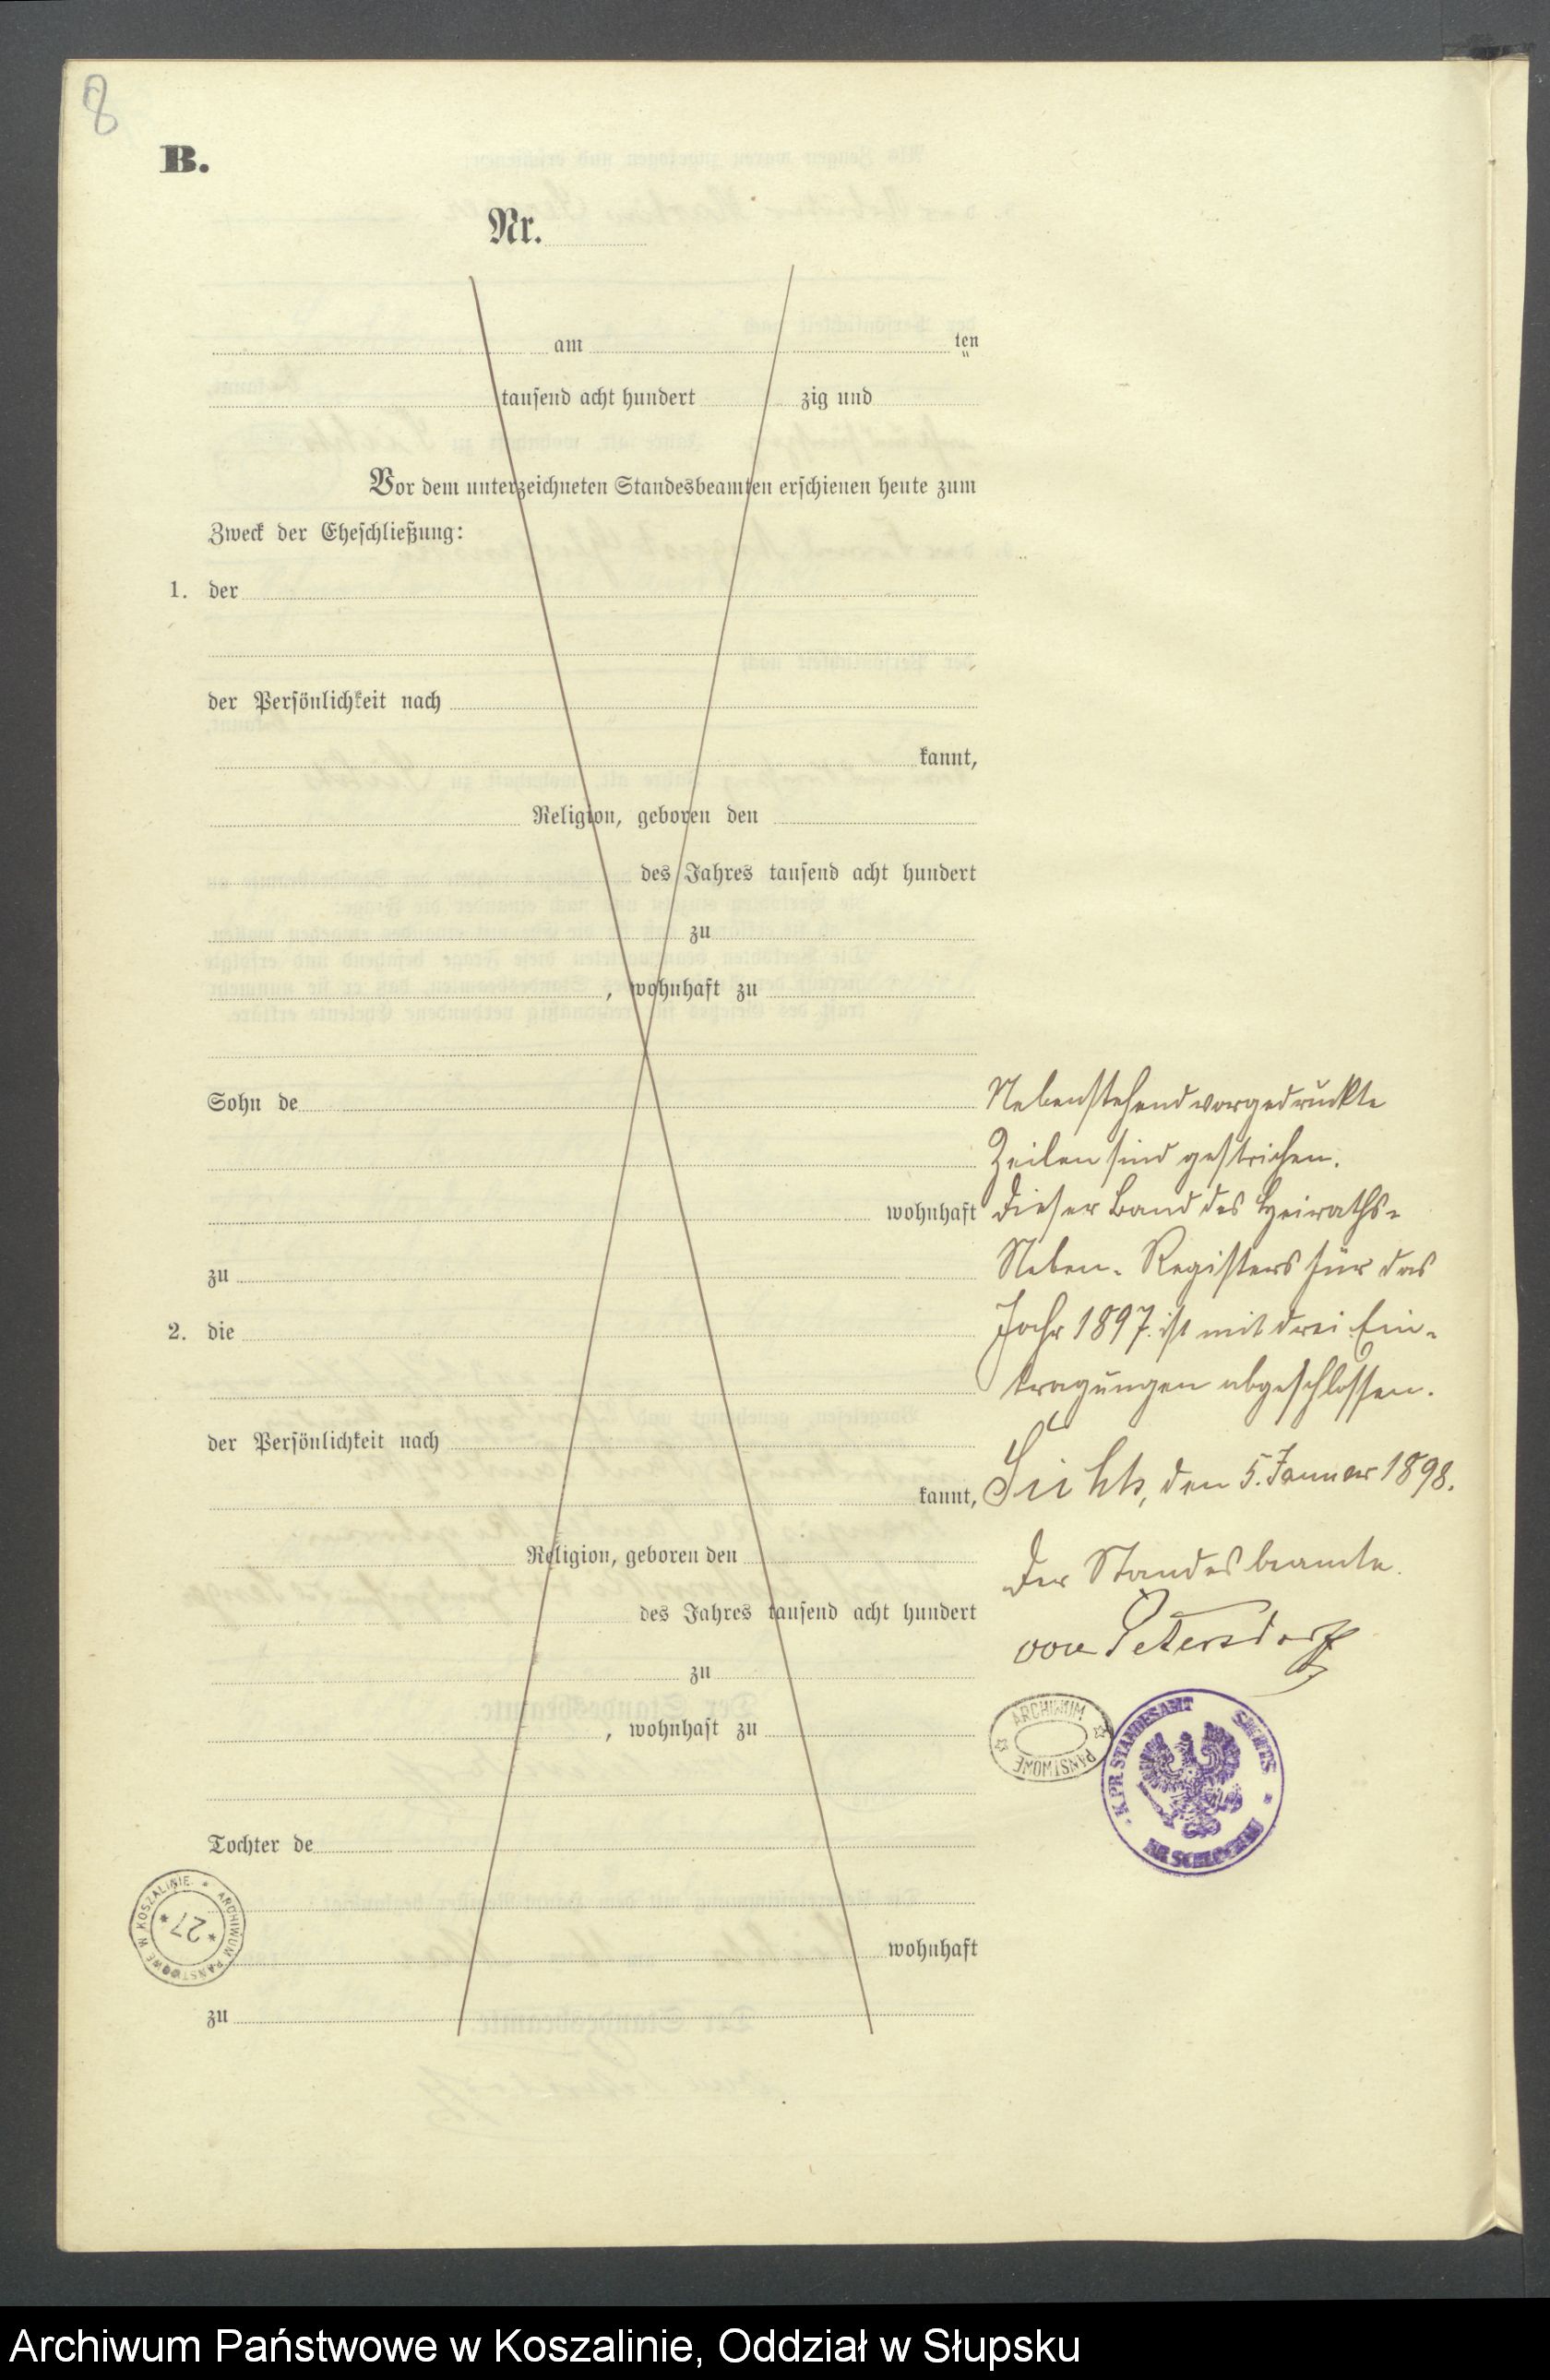 8
B.
Nr.
am ten
tausend acht hundert zig und
Vor dem unterzeichneten Standesbeamten erschienen heute zum
Zweck der Eheschließung:
1. der
der Persönlichkeit nach
kannt,
Religion, geboren den
des Jahres tausend acht hundert
zu
, wohnhaft zu
Sohn de
wohnhaft
zu
2. die
der Persönlichkeit nach
kannt,
Religion, geboren den
des Jahres tausend acht hundert
zu
, wohnhaft zu
Tochter de
wohnhaft
zu
Nebenstehend vorgedruckte
Zeilen sind gestrichen.
Dieser Band des Heiraths-
Neben-Registers für das
Jahr 1897. ist mit drei Ein-
tragungen abgeschlossen.
den 5. Januar 1898.
Der Standesbeamte.
von Petersdorff
ARCHIWUM PAŃSTWOWE
K. PR. STANDESAMT
KR SCHLOCHAU
ARCHIWUM PAŃSTWOWE W KOSZALINIE
* 27 *
Archiwum Państwowe w Koszalinie, Oddział w Słupsku